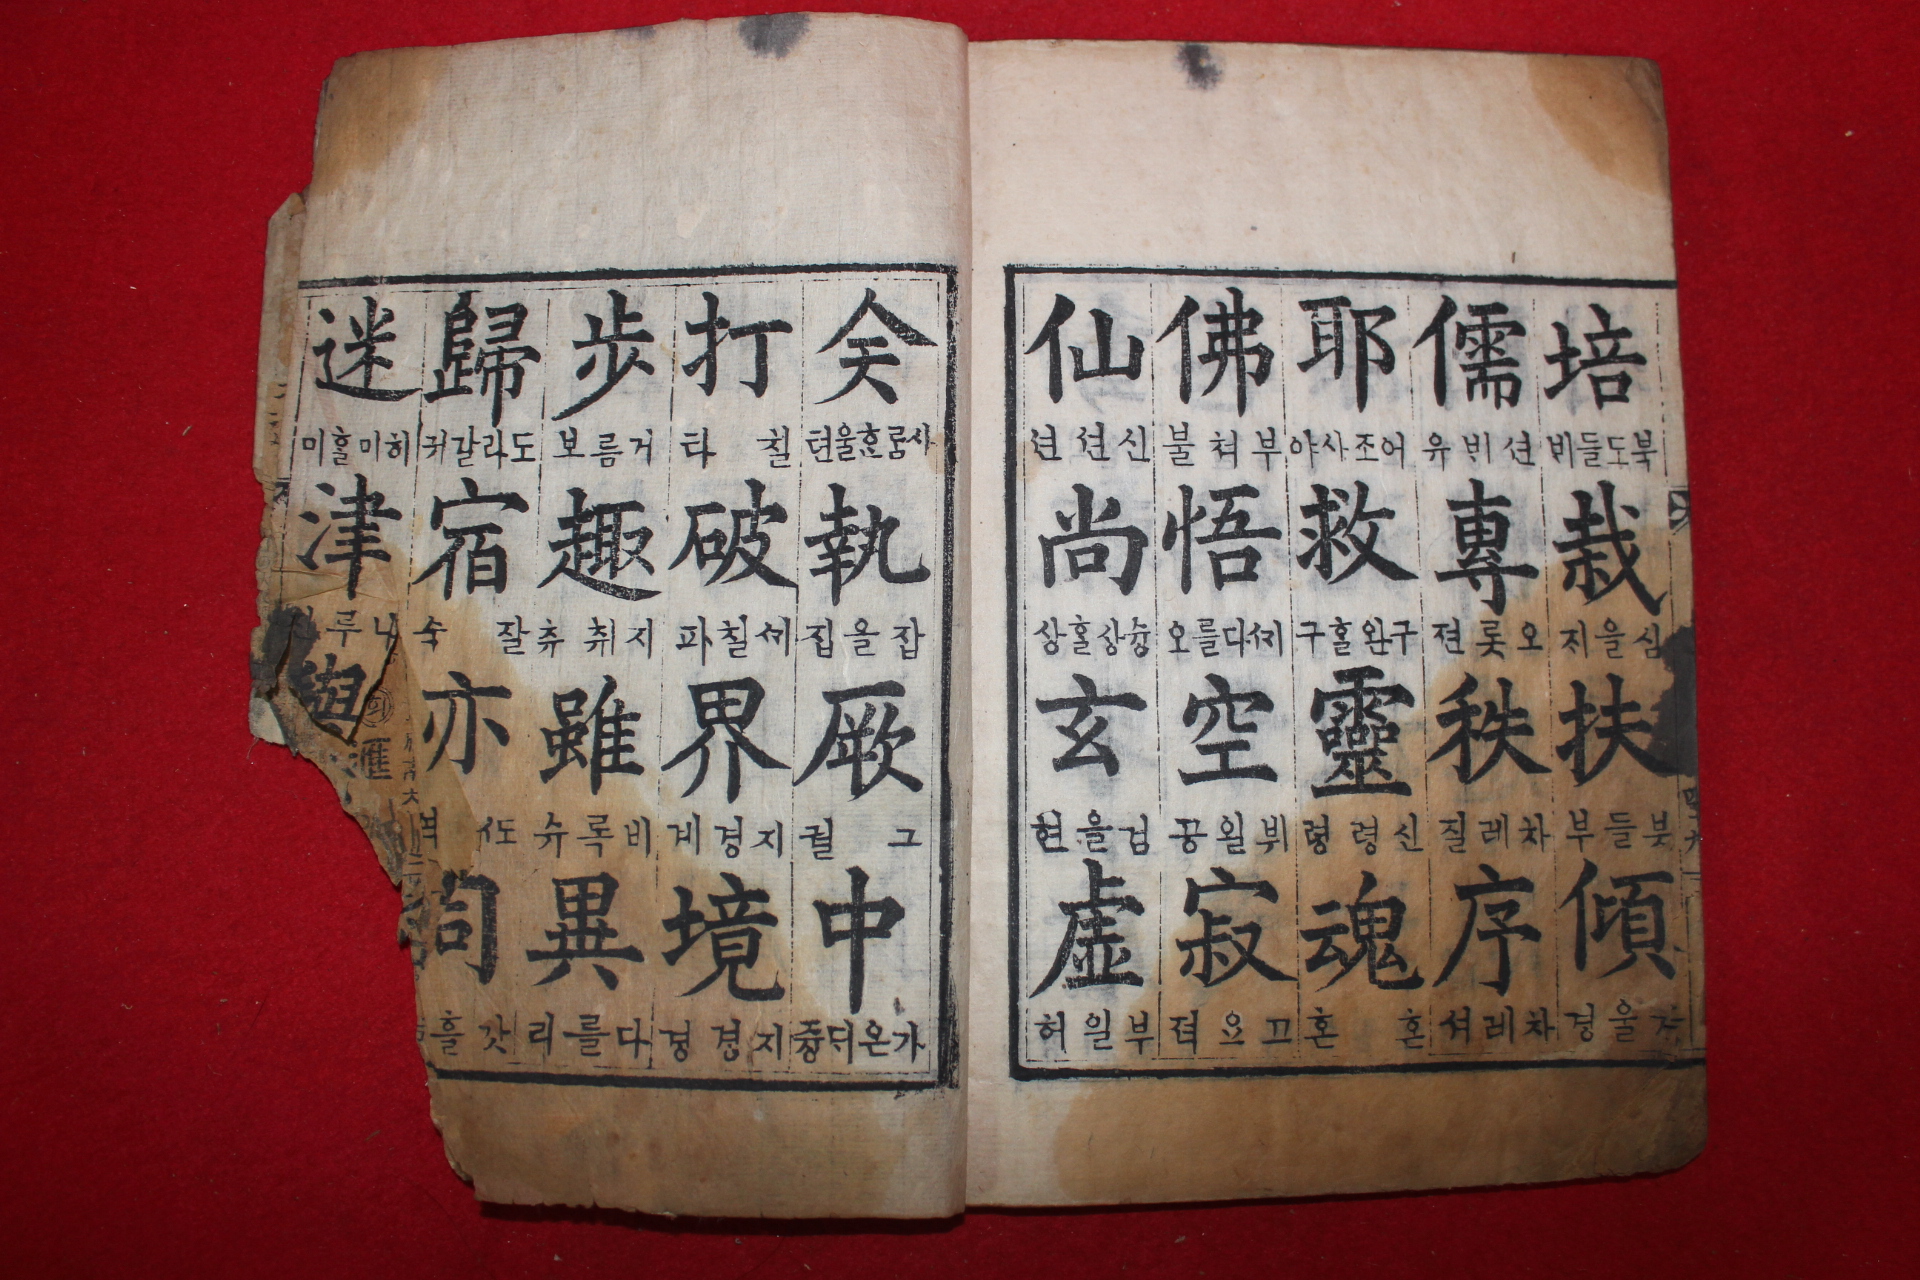 培 북도들비
栽 심을지
扶 붓들부
傾 울경
儒 션비유
專 오롯젼
秩 차레질
序 차레셔
耶 어조사야
救 구완홀구
靈 신령령
魂 혼혼
佛 부쳐불
悟 셰다를오
空 뷔일공
寂 고요젹
仙 신션션
尚 슝상홀상
玄 검을현
虛 부일허
執 잡을집
厥 그궐
中 가온듸즁
打 칠타
破 셰칠파
界 지경계
境 지경경
步 거름보
趣 지취츄
雖 비록슈
異 다를리
歸 도라갈귀
宿 잘숙
亦
同 갓흘
迷 희미홀미
津 나루